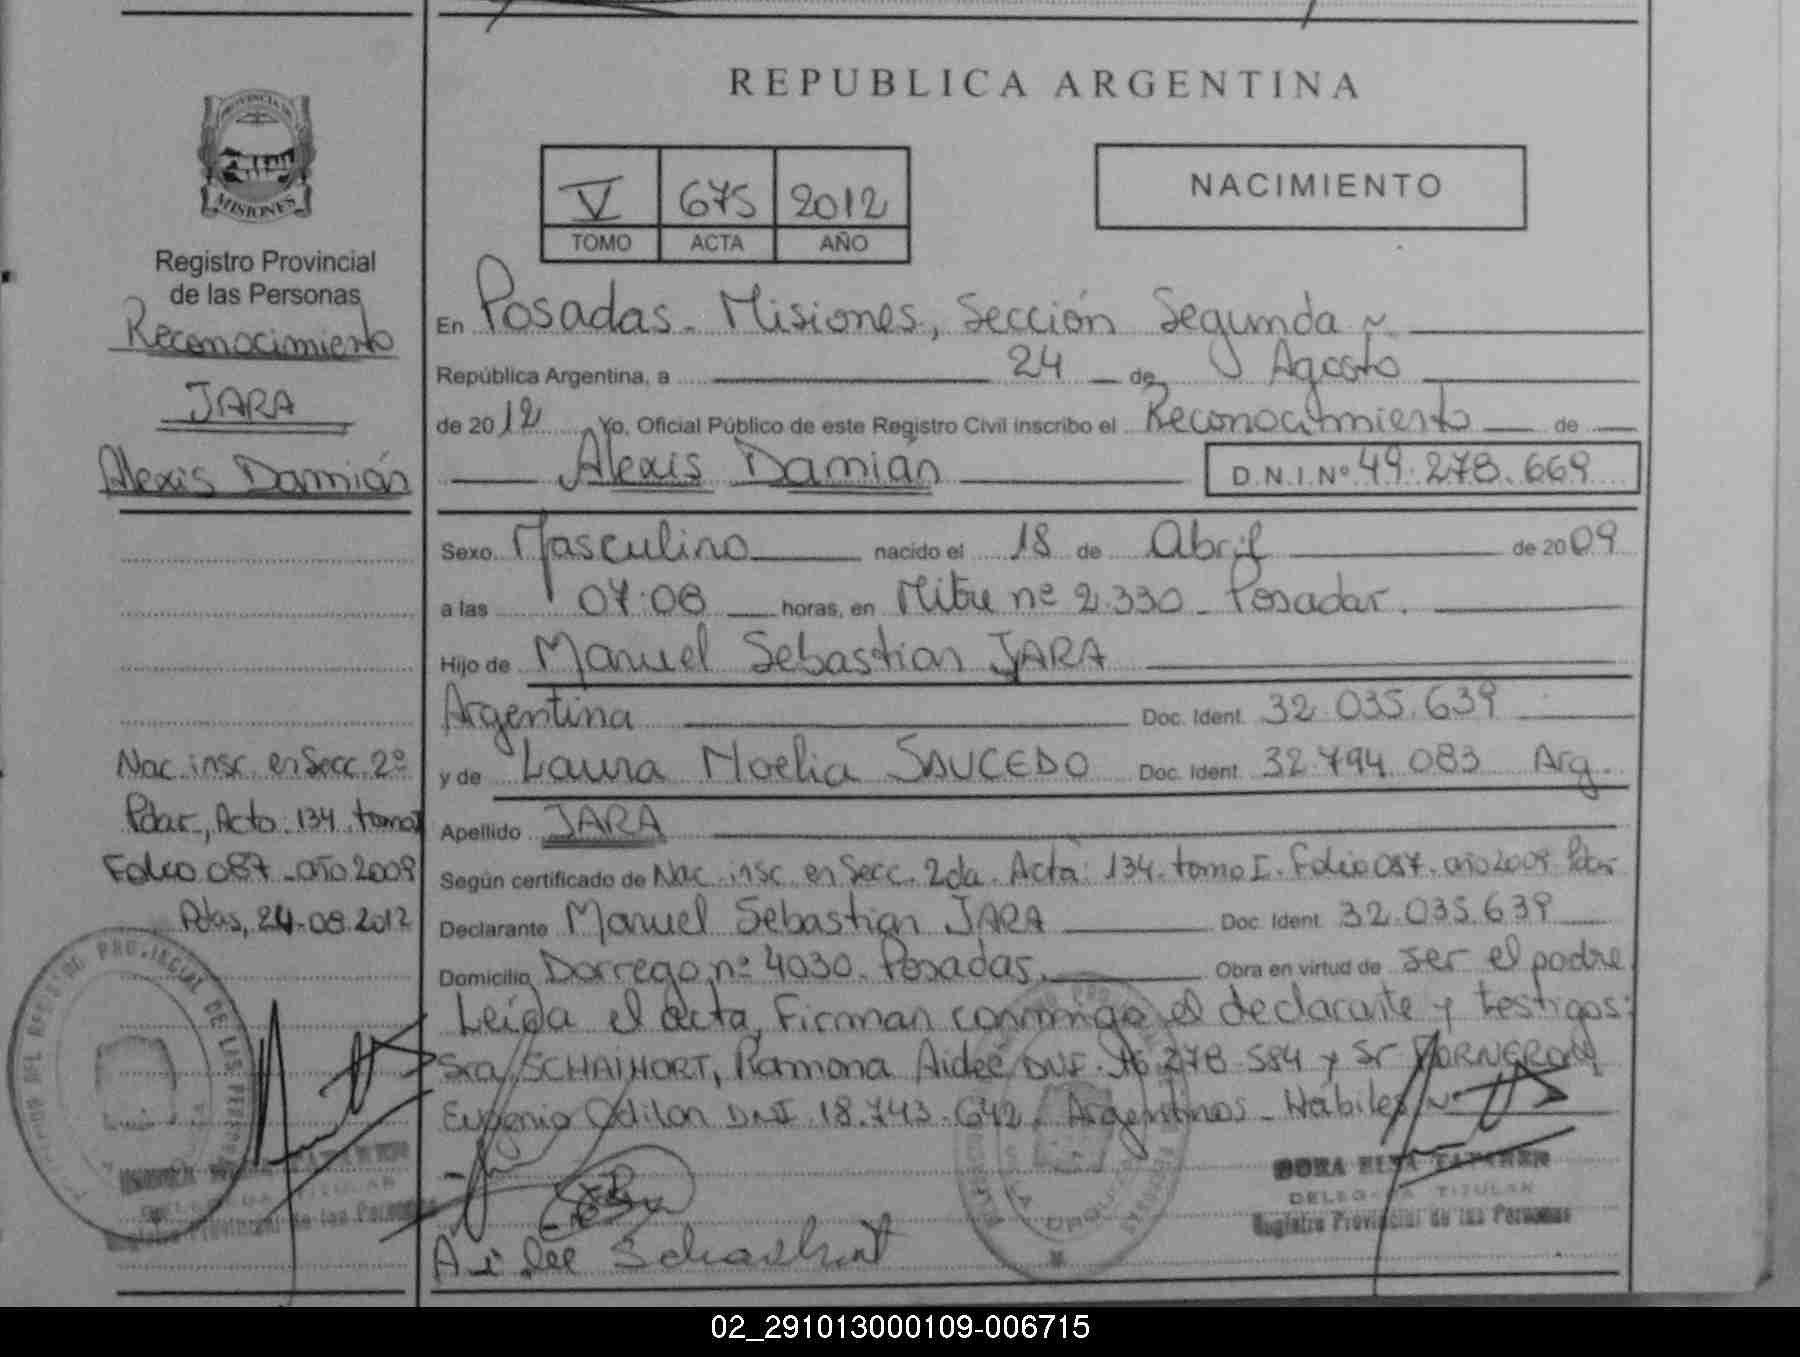 PROVINCIA DE
MISIONES
Registro Provincial
de las Personas
Reconocimiento
JARA
Alexis Damián
Nac. insc. en Secc. 2º
Pdas, Acta: 134. tomo I
Folio 087 - año 2009
Pdas, 24-08-2012
REPUBLICA ARGENTINA
V 675 2012
TOMO ACTA AÑO
NACIMIENTO
En Posadas - Misiones, Sección Segunda ~
República Argentina, a 24 de Agosto
de 2012 Yo, Oficial Público de este Registro Civil inscribo el Reconocimiento de
Alexis Damián D.N.I.Nº 49.278.669
Sexo Masculino nacido el 18 de Abril de 2009
a las 07:08 horas, en Mitre nº 2.330 - Posadas.
Hijo de Manuel Sebastian JARA
Argentina Doc. Ident. 32.035.639
y de Laura Noelia SAUCEDO Doc. Ident. 32.794.083 Arg.
Apellido JARA
Según certificado de Nac. insc. en Secc. 2da. Acta: 134. tomo I. Folio 087. año 2009 Pdas
Declarante Manuel Sebastian JARA Doc. Ident. 32.035.639
Domicilio Dorrego nº 4030. Posadas. Obra en virtud de ser el padre
Leída el acta, Firman conmigo el declarante y testigos:
Sra SCHAIHORT, Ramona Aidee DNI. 16.278.584 y Sr FORNERON
Eugenio Odilon DNI. 18.743.642. Argentinos - Hábiles ~
DORA ELSA
DELEGADA TITULAR
Registro Provincial de las Personas
DELEGADA TITULAR
Registro Provincial de las Personas
Aidee Schaihort
02_291013000109-006715